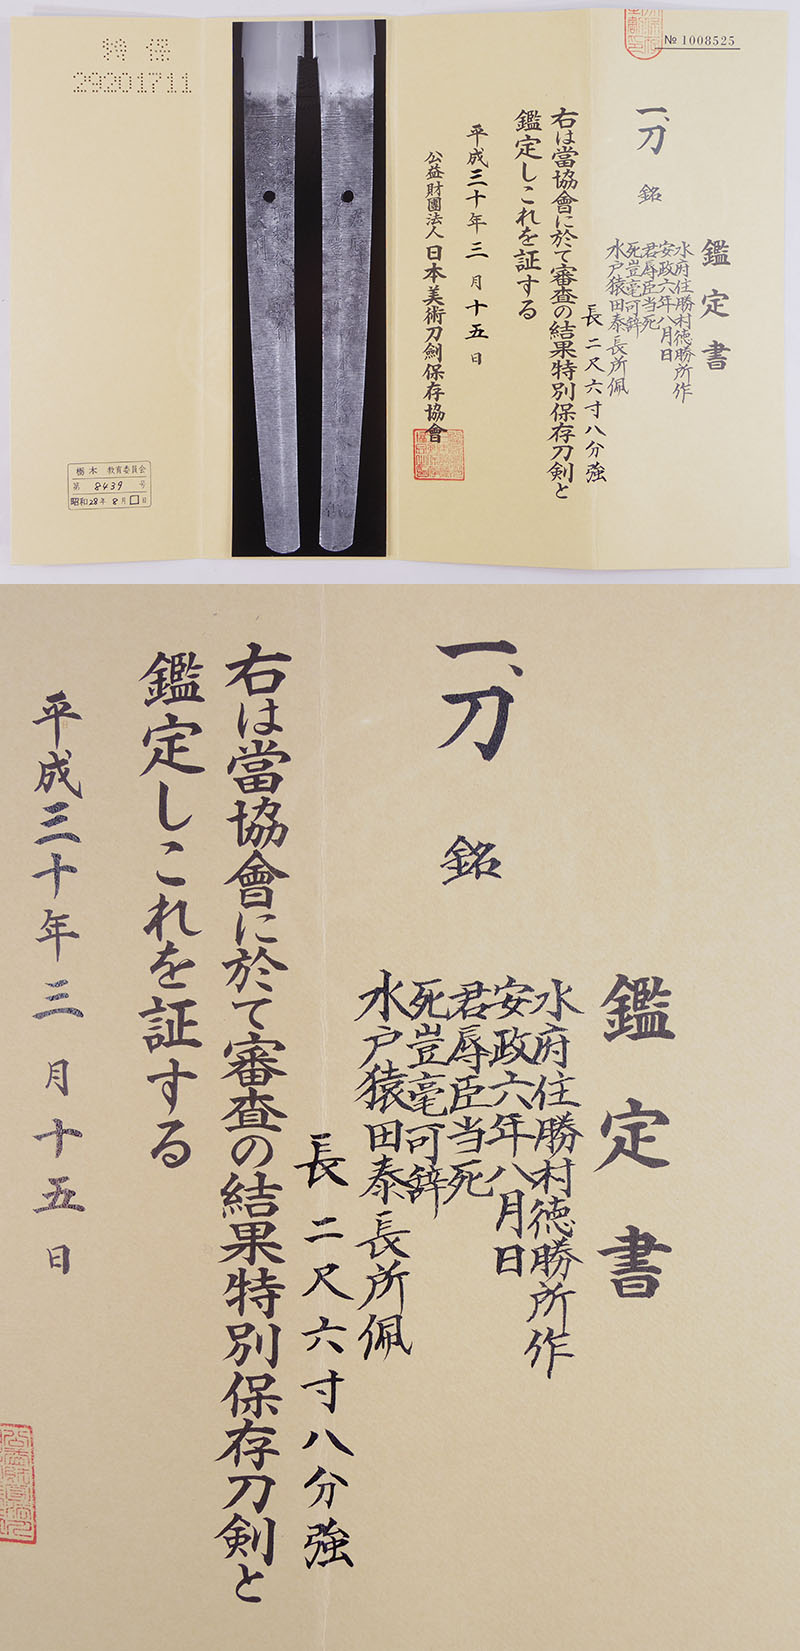 № 1008525
鑑定書
一、刀 銘
水府住勝村徳勝所作
安政六年八月日
君辱臣当死
死豈毫可辞
水戸猿田泰長所佩
長二尺六寸八分強
右は當協會に於て審査の結果特別保存刀剣と
鑑定しこれを証する
平成三十年三月十五日
公益財團法人日本美術刀劍保存協會
特保
29201711
栃木 教育委員会
第 8439 号
昭和28年8月 日
鑑定書
一、刀 銘
水府住勝村徳勝所作
安政六年八月日
君辱臣当死
死豈毫可辞
水戸猿田泰長所佩
長二尺六寸八分強
右は當協會に於て審査の結果特別保存刀剣と
鑑定しこれを証する
平成三十年三月十五日